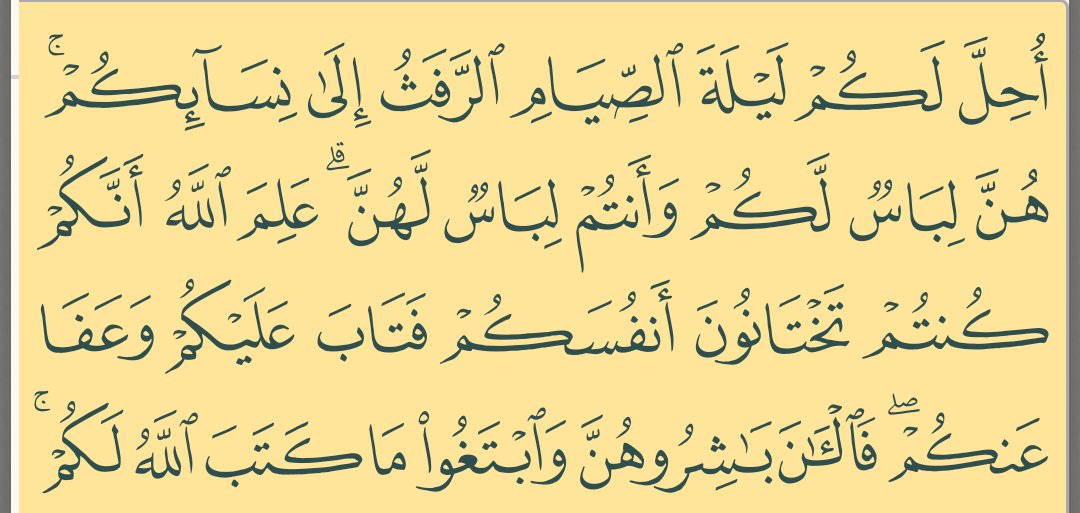 أُحِلَّ لَكُمۡ لَيۡلَةَ ٱلصِّيَامِ ٱلرَّفَثُ إِلَىٰ نِسَآئِكُمۡۚ
هُنَّ لِبَاسٞ لَّكُمۡ وَأَنتُمۡ لِبَاسٞ لَّهُنَّۗ عَلِمَ ٱللَّهُ أَنَّكُمۡ
كُنتُمۡ تَخۡتَانُونَ أَنفُسَكُمۡ فَتَابَ عَلَيۡكُمۡ وَعَفَا
عَنكُمۡۖ فَٱلۡـَٰٔنَ بَٰشِرُوهُنَّ وَٱبۡتَغُواْ مَا كَتَبَ ٱللَّهُ لَكُمۡۚ